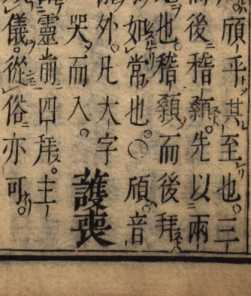 頎乎其至也。三
而後稽顙。先以兩
也。稽顙而後拜
如常也。○頎音
外。凡大字
哭而入。
護喪
靈前四拜。主
儀。從俗亦可。